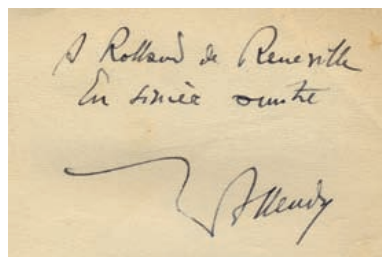 A Rolland de Reneville
En sincère
Allendy